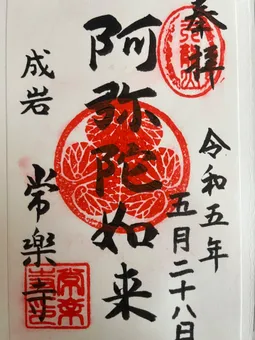 奉拝
令和五年
五月二十八日
阿弥陀如来
成岩
常楽寺